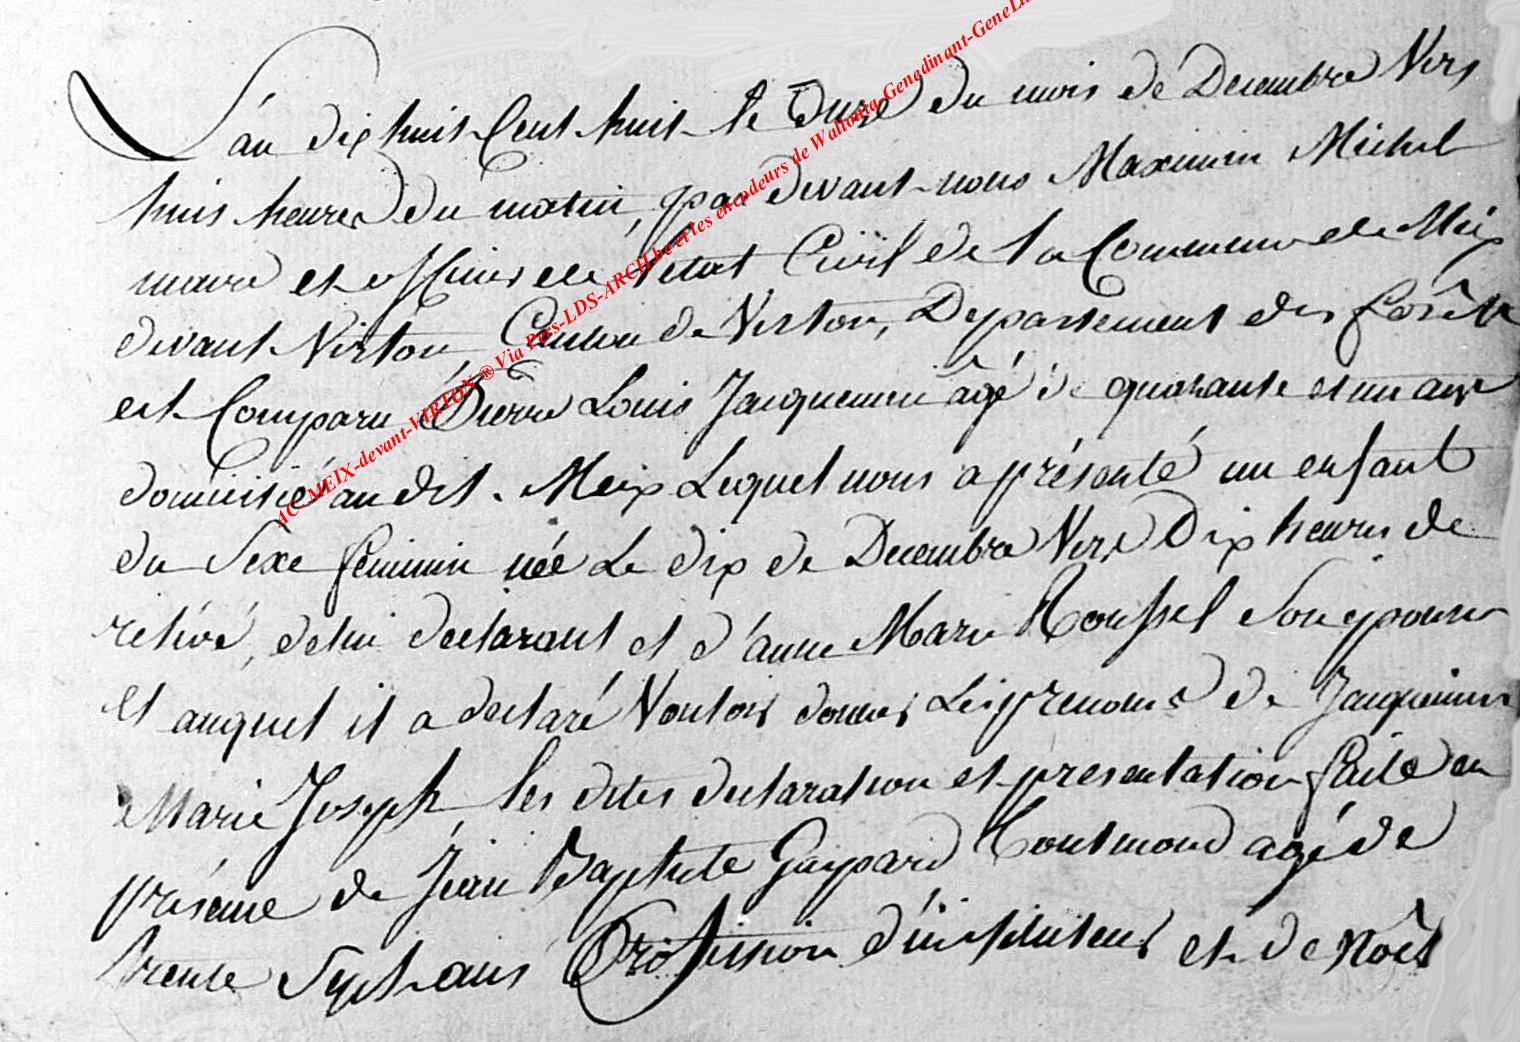 L'an dix huit Cent huit le Onze du mois de Decembre Vers
huit heures du matin, par devant nous Maximin Michel
maire et officier de l'état Civil de la Commune de Meix
devant Virton, Canton de Virton, Departement des forêts
est Comparu Pierre Louis Jacquemin âgé de quarante et un ans
domicilié au dit Meix Lequel nous a présenté un enfant
du Sexe féminin née Le dix de Decembre Vers Dix heures de
relivé, de lui declarant et d'anne Marie Roussel Son epouse
et auquel il a declaré Vouloir donner Les prenoms de Jacquemin
Marie Joseph, les dites declaration et presentation faite en
présence de Jéan Baptiste Gaspard Toutmond agé de
trente Sept ans Profession d'instituteur et de Noêl
AC-MEIX-devant-VIRTON ® Via Pers-LDS-ARCH.be et les encodeurs de Wallonia-Genedinant-GeneLis